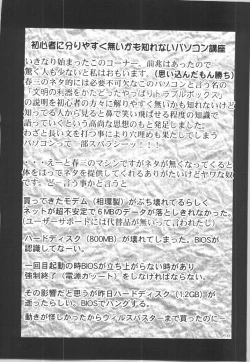 初心者に分りやすく無い方も知れないパソコン講座
いきなり始まったこのコーナー。前兆はあったので
驚く人も少ないと私はおもいます。(思い込んだもん勝ち)
春三のネタ的には必要不可欠なこのパソコンと言う名の
「文明の利器をかたどったやっぱりトラブルボックス」
の説明を初心者の方々に解りやすく無いかも知れないけど
知ってる人から見ると鼻で笑い飛ばせる程度の知識で
語っていくという高尚な思想のもと発足しました。
わざと長い文を打つ事により穴埋めも果たしてしまう
パソコンって一部スバラシ〜ッ!!
・・・えーと春三のマシンですがネタが無くなってくると
体をはってネタを提供してくれるありがたいけどヤな奴
です。どー言う事かと言うと
買ってきたモデム(相理製)がぶち壊れてるらしく
ネットが超不安定で6MBのデータが落としきれなかった。
(ユーザーサポードには代替品が無いって言われたし)
ハードディスク(800MB)が壊れてしまった。BIOSが
認識してなーい。
一回目起動の時BIOSが立ち上がらない時があり
強制終了(電源カット)をしなければならない。
その影響だと思うが昨日ハードディスク(1.2GB)が
逝ったらしい。BIOSでハングする。
動きが怪しかったからウィルスバスターまで買ったのにー